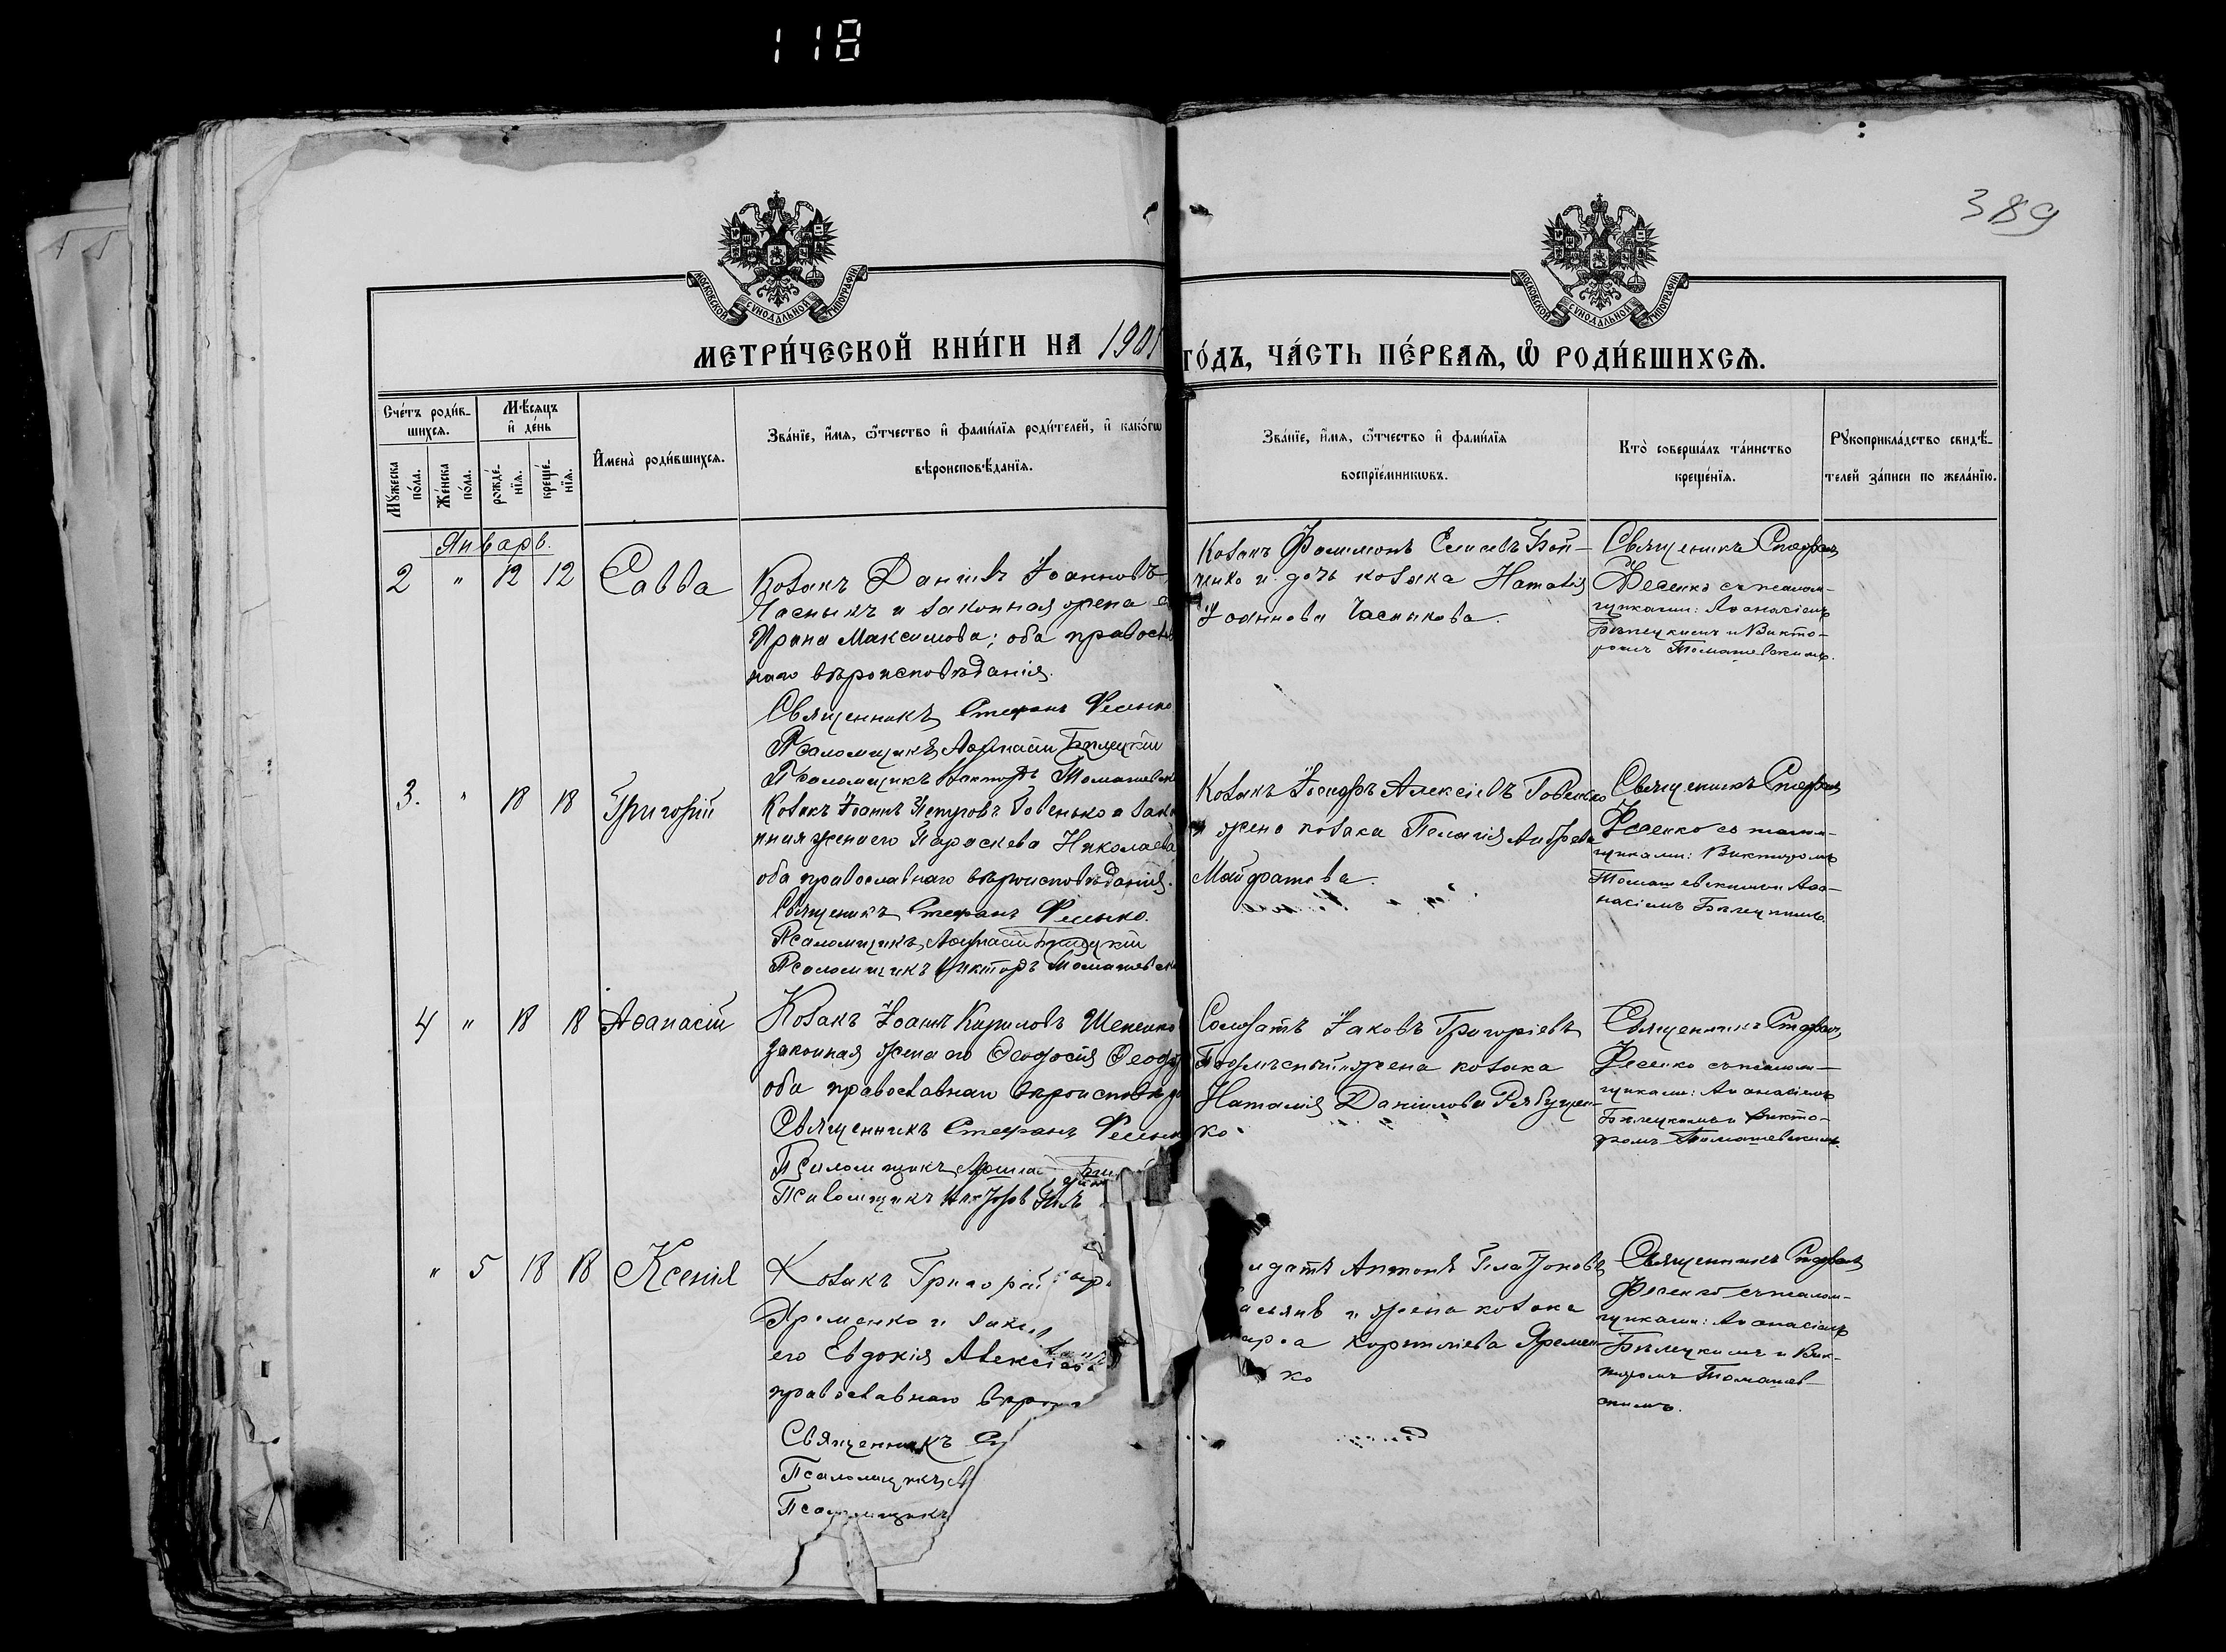 118
389
МОСКОВСКОЙ СѴНОДАЛЬНОЙ ТИПОГРАФІИ
МОСКОВСКОЙ СѴНОДАЛЬНОЙ ТИПОГРАФІИ
МЕТРИ́ЧЕСКОЙ КНИ́ГИ НА 1901 ГО́ДЪ, ЧА́СТЬ ПЕ́РВАѦ, Ѡ РОДИ́ВШИХСѦ.
Сче́тъ роди́в-
шихсѧ.
Мѣ́сѧцъ
и҆ де́нь
Мꙋ́жеска
по́ла.
Же́нска
по́ла.
рожде́-
нїѧ.
креще́-
нїѧ.
И҆мена̀ роди́вшихсѧ.
Зва́нїе, и҆́мѧ, ѻ҆́тчество и҆ фами́лїѧ роди́телей, и҆ како́гѡ
вѣроисповѣ́данїѧ.
Зва́нїе, и҆́мѧ, ѻ҆́тчество и҆ фами́лїѧ
воспрїе́мникѡвъ.
Кто̀ соверша́лъ та́инство
креще́нїѧ.
Рꙋкоприкла́дство свидѣ́-
телей за́писи по жела́нїю.
Январь.
2 " 12 12 Савва
Козакъ Даніилъ Іоанновъ
Часныкъ и законная жена
Ирина Максимова; оба правосл
наго вѣроисповѣданія.
Священникъ Стефанъ Фесенко
Псаломщикъ Аѳанасій Бѣлецкій
Псаломщикъ Викторъ Томашевск
Козакъ Филимонъ Бой-
ченко и дочь козака Наталія
Іоаннова Часныкова.
Священникъ Стефанъ
Фесенко съ псалом-
щиками: Аѳанасіемъ
Бѣлецкимъ и Викто-
ромъ Томашевскимъ.
3. " 18 18 Григорій
Козакъ Іоаннъ Петровъ Говенько и зако
нная жена его Параскева Николаева
оба православнаго вѣроисповѣданія.
Священикъ Стефанъ Фесенко.
Псаломщикъ Аѳанасій Бѣлецкій
Псаломщикъ Викторъ Томашевск
Козакъ Іосифъ Алексіевъ Говенько
и жена козака Пелагія Андреева
Майфатова.
Священикъ Стефанъ
Фесенко съ псалом-
щиками: Викторомъ
Томашевскимъ и Аѳа-
насіемъ Бѣлецкимъ.
4 " 18 18 Аѳанасій
Козакъ Іоаннъ Кириловъ
законная жена его Ѳеодосія
оба православнаго вѣроисповѣда
Священникъ Стефанъ Фесенк
Псаломщикъ
Псаломщикъ
Солдатъ Іаковъ Григоріевъ
и жена козака
Наталія Даніилова Рябущен-
ко.
Священникъ Стефанъ
Фесенко съ псалом-
щиками: Аѳанасіемъ
Бѣлецкимъ и Викто-
ромъ Томашевскимъ.
" 5 18 18 Ксенія
Козакъ Григорій
Яременко и закон
его Евдокія Алексіева
православнаго вѣрои
Священникъ Ст
Псаломщикъ
Псаломщикъ
лдатъ Антонъ Платоновъ
и жена козака
Корниліева Яремен-
ко
Священникъ Стефанъ
Фесенко съ псалом-
щиками: Аѳанасіемъ
Бѣлецкимъ и Вик-
торомъ Томашев-
скимъ.